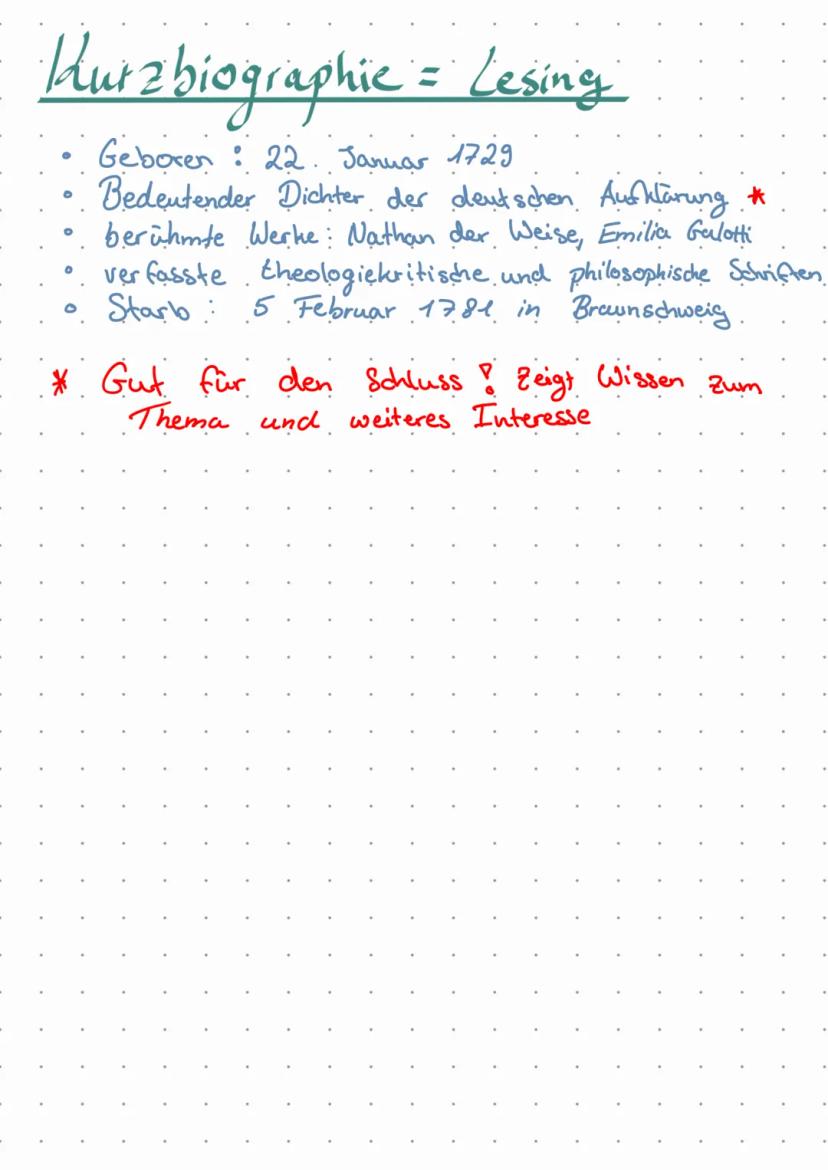 Kurzbiographie = Lesing
• Geboren : 22. Januar 1729
• Bedeutender Dichter der deutschen Aufklärung *
• berühmte Werke : Nathan der Weise, Emilia Galotti
• verfasste theologiekritische und philosophische Schriften
• Starb : 5 Februar 1781 in Braunschweig
* Gut für den Schluss ! Zeigt Wissen zum
Thema und weiteres Interesse